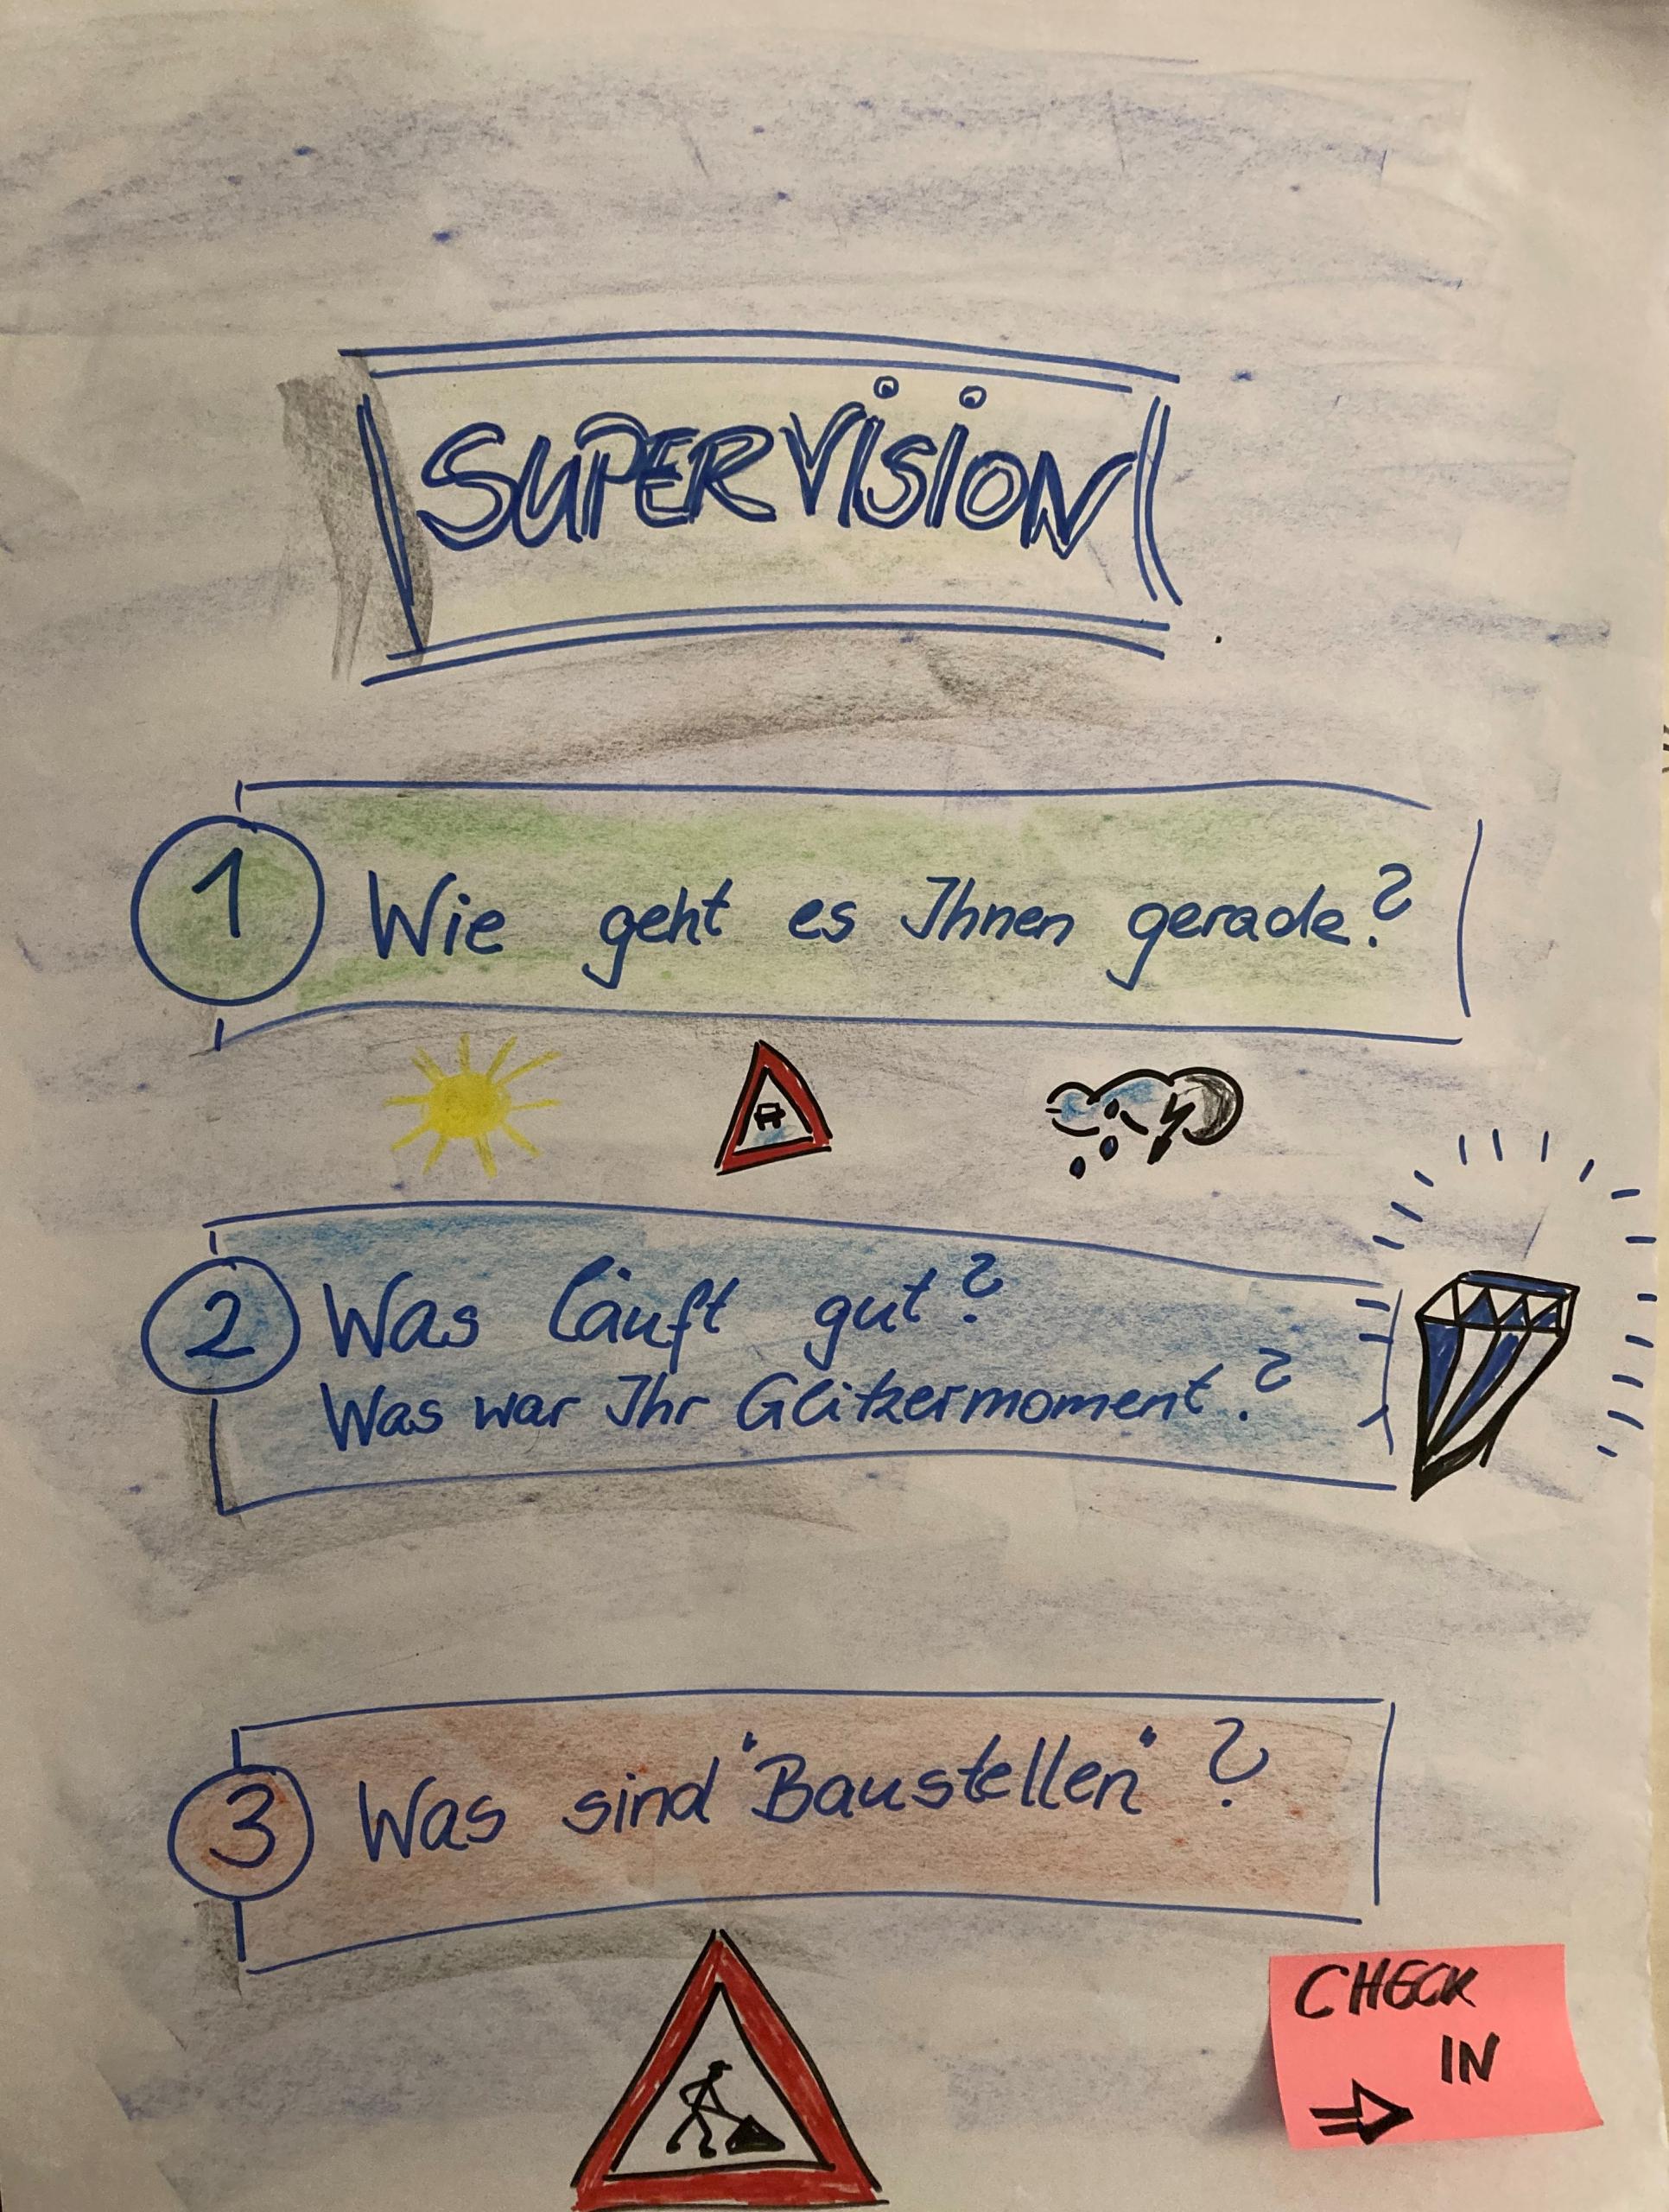 SUPERVISION
1 Wie geht es Ihnen gerade?
2 Was läuft gut?
Was war Ihr Glitzermoment?
3 Was sind "Baustellen"?
CHECK
IN